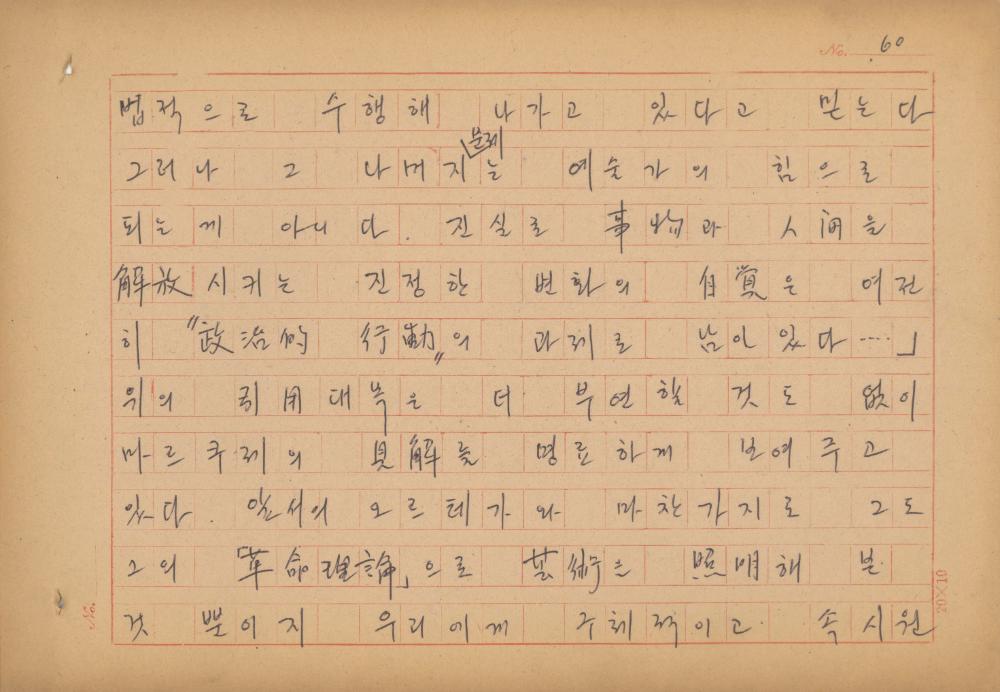 No. 60
법적으로 수행해 나가고 있다고 믿는다
그러나 그 나머지 문제는 예술가의 힘으로
되는게 아니다. 진실로 事物과 人间을
解放시키는 진정한 변화의 自覚은 여전
히 "政治的 行動"의 과제로 남아 있다……」
위의 引用대목은 더 부연할 것도 없이
마르쿠제의 見解를 명료하게 보여주고
있다. 앞서의 오르테가와 마찬가지로 그도
그의 「革命理論」으로 芸術을 照明해 본
것 뿐이지 우리에게 구체적이고 속시원
20×10
No.